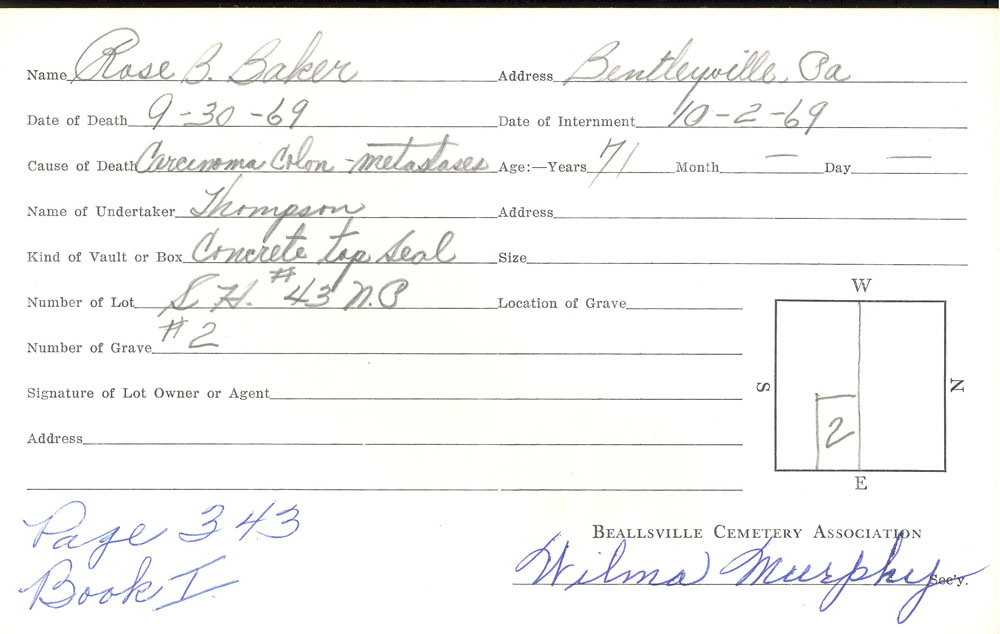 Name Rose B. Baker Address Bentleyville, Pa
Date of Death 9-30-69 Date of Internment 10-2-69
Cause of Death Carcinoma Colon - metastases Age:—Years 71 Month — Day —
Name of Undertaker Thompson Address
Kind of Vault or Box Concrete top seal Size
Number of Lot S. H. #43 N.P Location of Grave
Number of Grave #2
Signature of Lot Owner or Agent
Address
W
S N
2
E
Page 343
Book I.
Beallsville Cemetery Association
Wilma Murphy Sec'y.